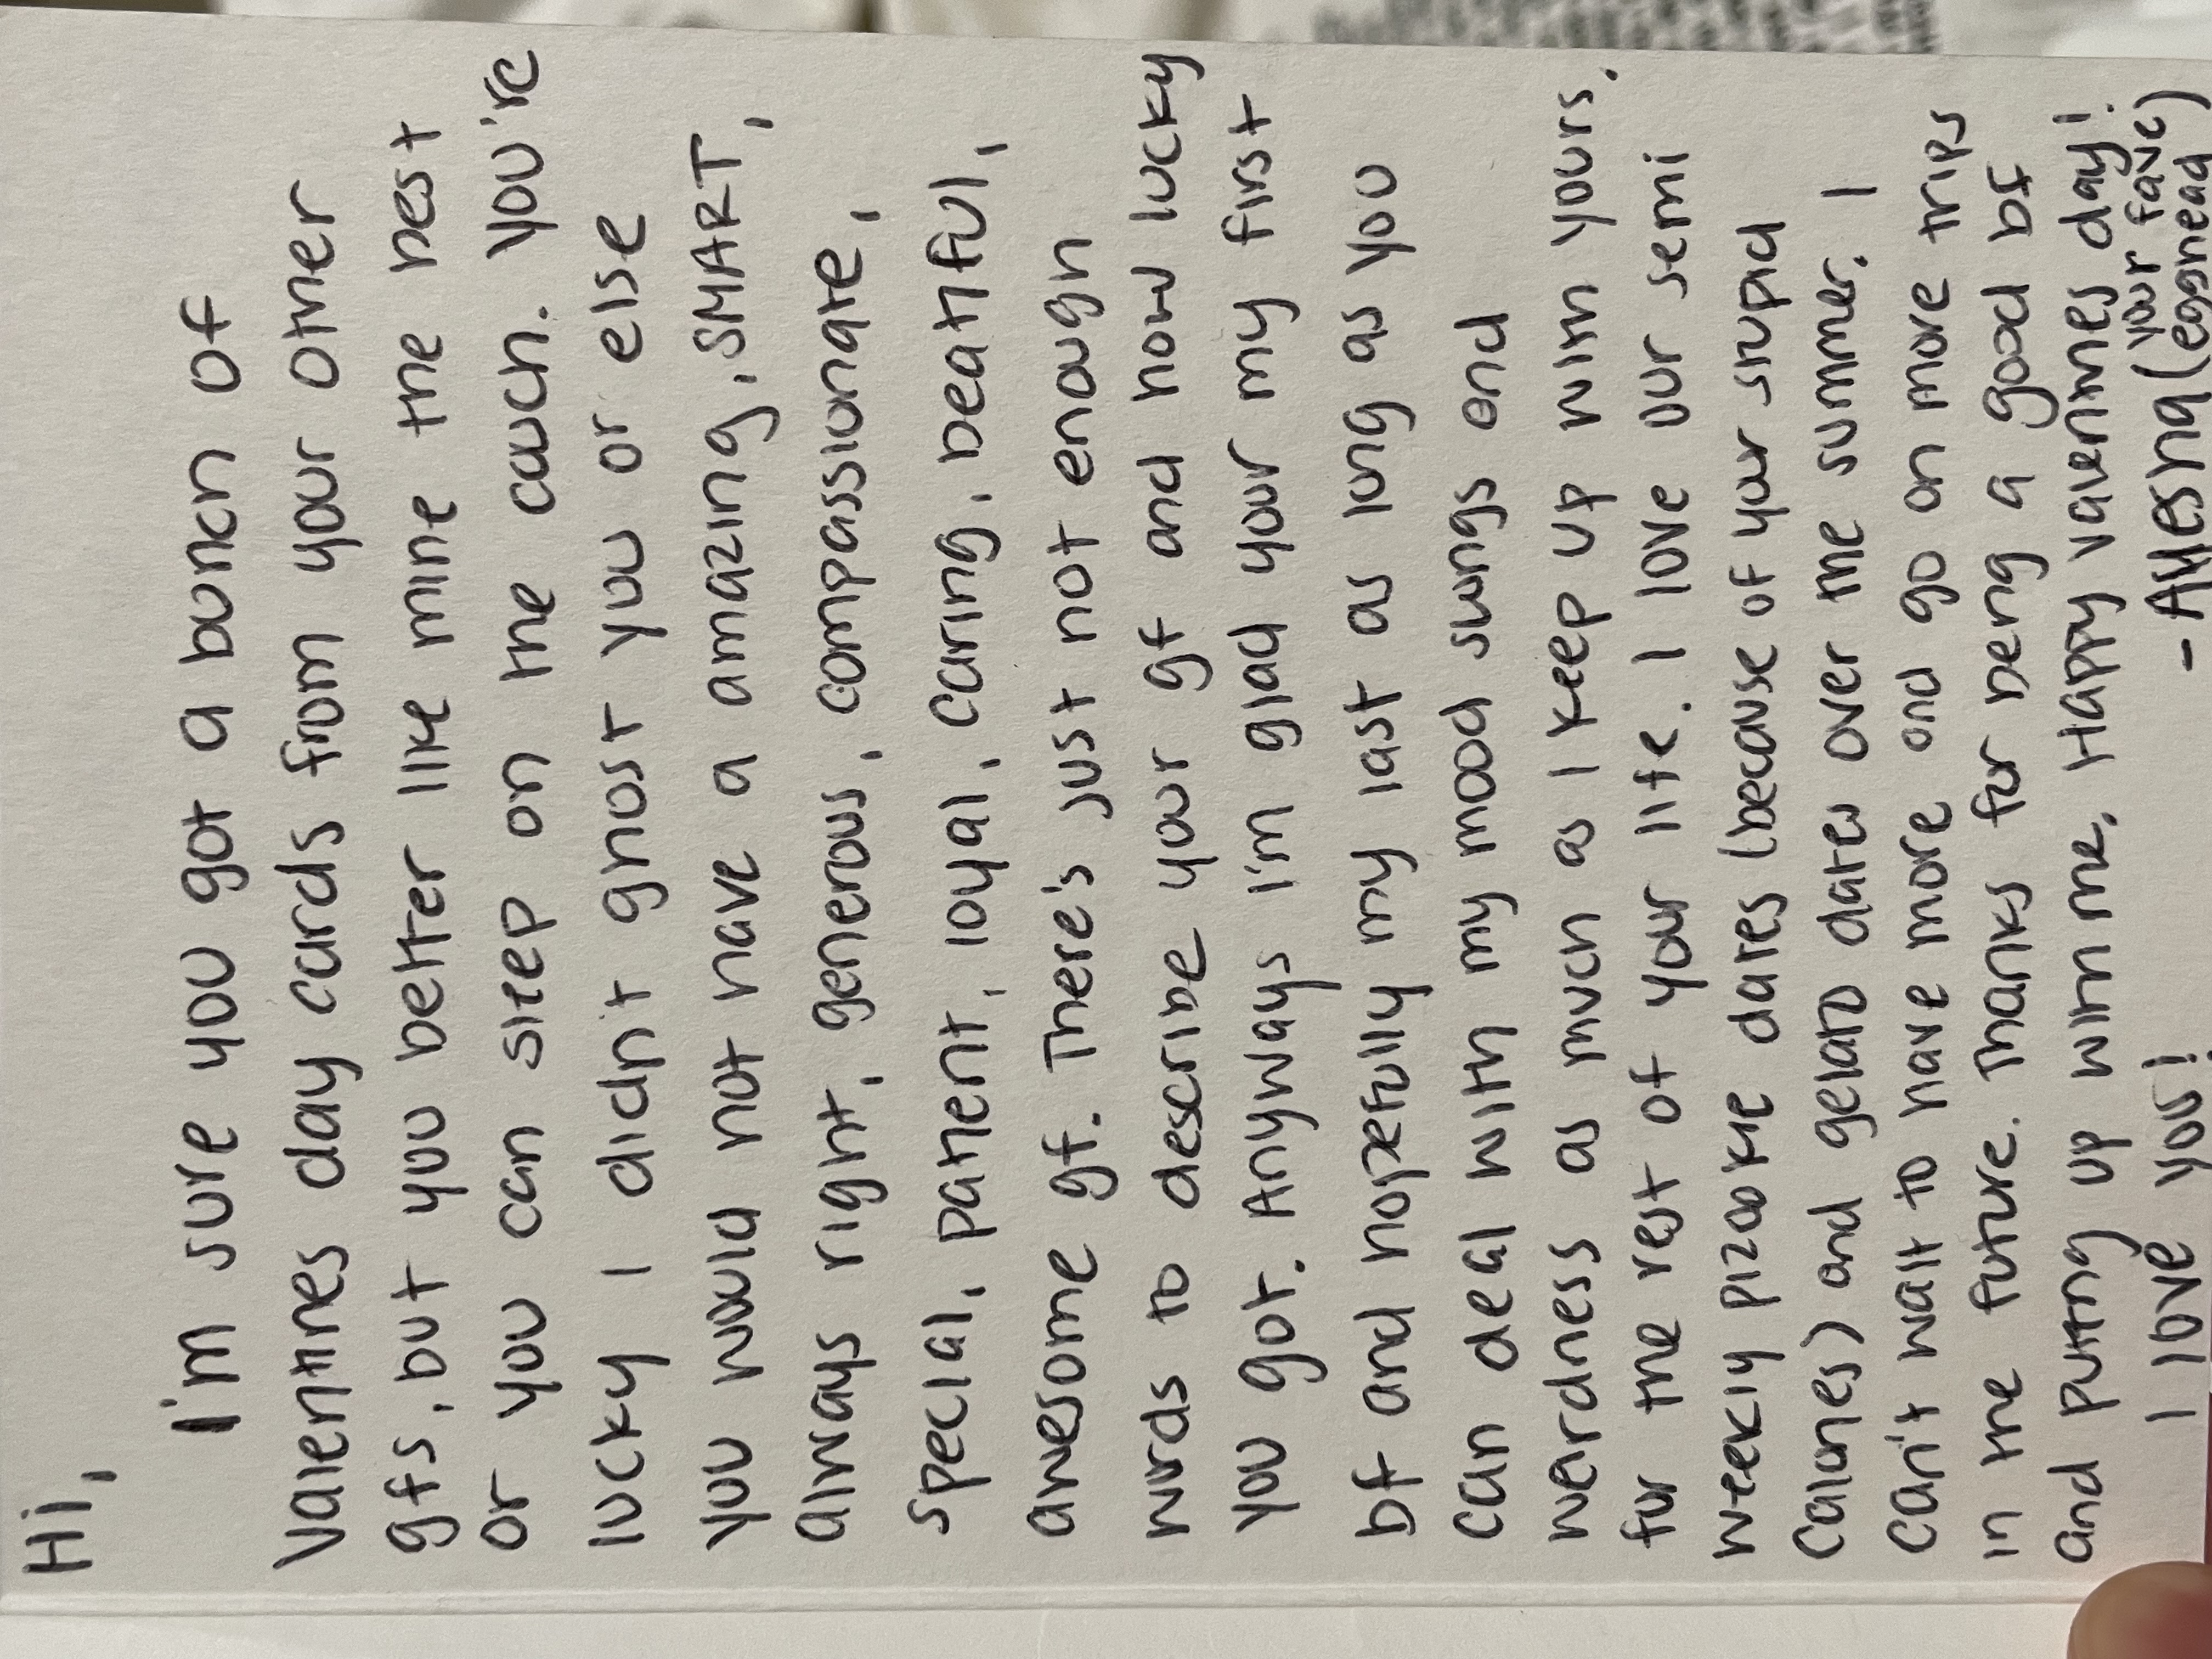 Hi,
I'm sure you got a bunch of
Valentines day cards from your other
gfs, but you better like mine the best
or you can sleep on the couch. You're
lucky I didn't ghost you or else
you would not have a amazing, SMART,
always right, generous, compassionate,
special, patient, loyal, caring, beatiful,
awesome gf. There's just not enough
words to describe your gf and how lucky
you got. Anyways I'm glad your my first
bf and hopefully my last as long as you
can deal with my mood swings and
weirdness as much as I keep up with yours.
for the rest of your life. I love our semi
weekly pizookie dates (because of your stupid
calories) and gelato dates over the summer. I
can't wait to have more and go on more trips
in the future. Thanks for being a good bf
and putting up with me. Happy valentines day!
I love you! - Ayesha (your fave
egghead)